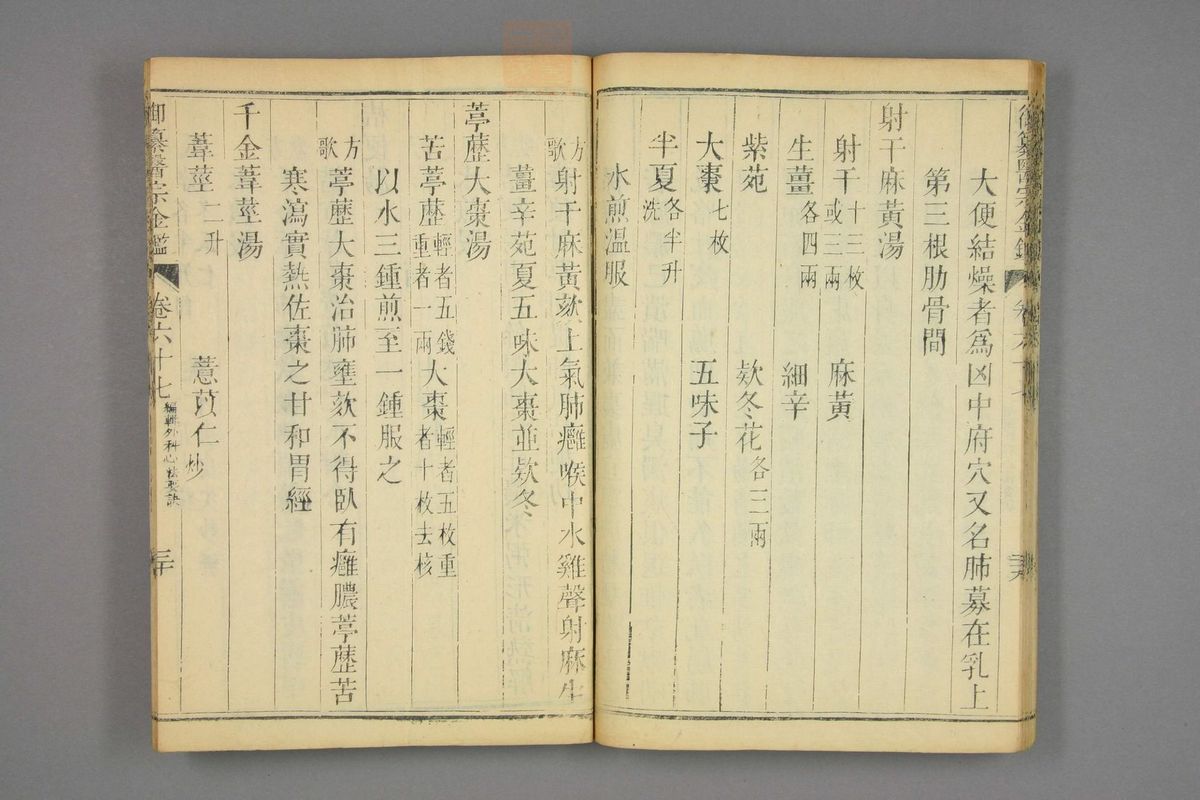 大便結燥者爲凶中府穴又名肺募在乳上
第三根肋骨間
射干麻黃湯
射干十三枚或三兩 麻黃
生薑各四兩 細辛
紫苑 欵冬花各三兩
大棗七枚 五味子
半夏各半升洗
水煎溫服
方歌射干麻黃欬上氣肺癰喉中水雞聲射麻生
薑辛苑夏五味大棗並欵冬
葶藶大棗湯
苦葶藶輕者五錢重者一兩 大棗輕者五枚重者十枚去核
以水三鍾煎至一鍾服之
方歌葶藶大棗治肺壅欬不得臥有癰膿葶藶苦
寒瀉實熱佐棗之甘和胃經
千金葦莖湯
葦莖二升 薏苡仁炒
御纂醫宗金鑑 卷六十七 編輯外科心法要訣